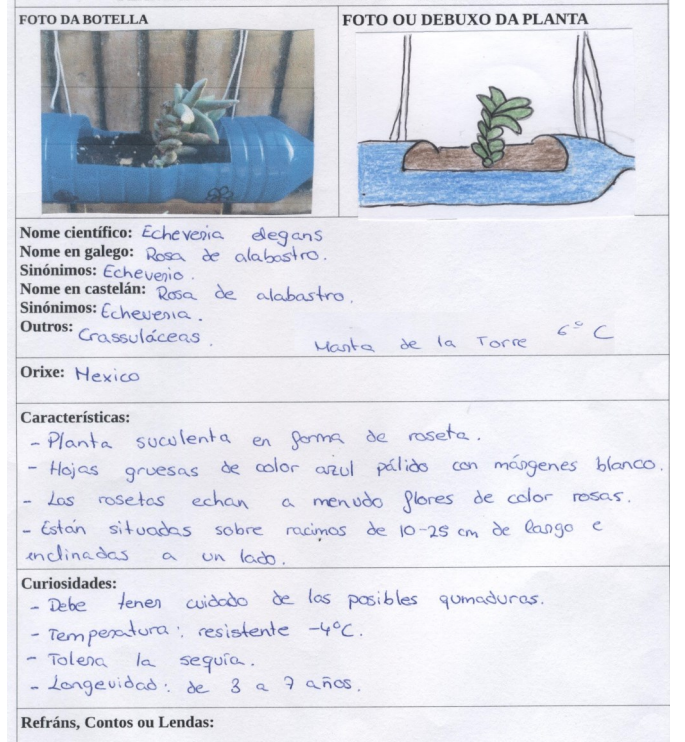 FOTO DA BOTELLA
FOTO OU DEBUXO DA PLANTA
Nome científico: Echeveria elegans
Nome en galego: Rosa de alabastro.
Sinónimos: Echeverio.
Nome en castelán: Rosa de alabastro.
Sinónimos: Echeveria.
Outros: Crassuláceas.
Marta de la Torre 6º C
Orixe: Mexico
Características:
- Planta suculenta en forma de roseta.
- Hojas gruesas de color azul pálido con márgenes blanco.
- Las rosetas echan a menudo flores de color rosas.
- Están situadas sobre racimos de 10-25 cm de largo e
inclinadas a un lado.
Curiosidades:
- Debe tener cuidado de las posibles qumaduras.
- Temperatura: resistente -4ºC.
- Tolera la sequía.
- Longevidad: de 3 a 7 años.
Refráns, Contos ou Lendas: